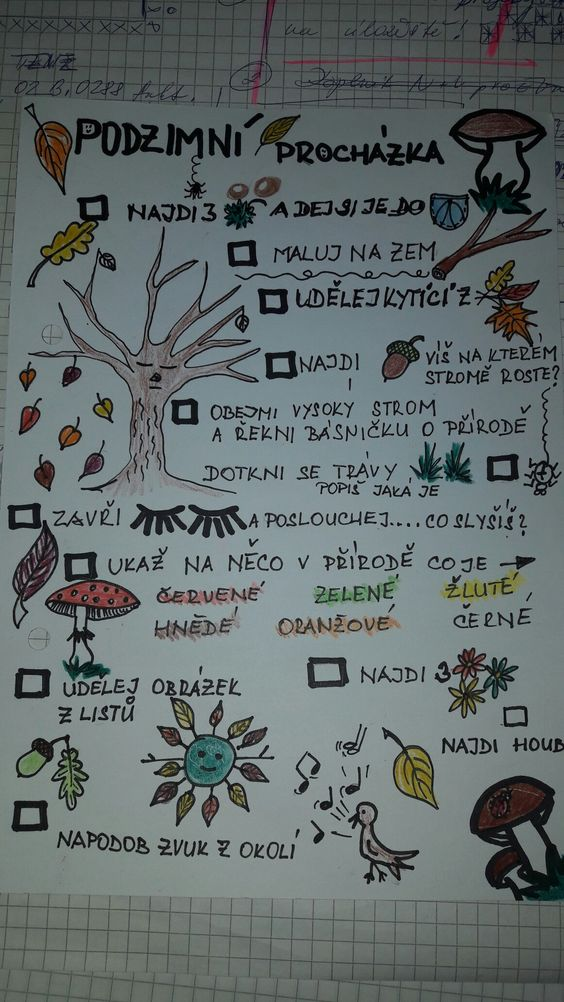 na úloředě!
02 B, 0288
PODZIMNÍ PROCHÁZKA
NAJDI 3 A DEJ SI JE DO
MALUJ NA ZEM
UDĚLEJ KYTICI Z
NAJDI VÍŠ NA KTERÉM
STROMĚ ROSTE?
OBEJMI VYSOKY STROM
A ŘEKNI BÁSNIČKU O PŘÍRODĚ
DOTKNI SE TRÁVY
POPIŠ JAKÁ JE
ZAVŘI A POSLOUCHEJ.... CO SLYŠÍŠ?
UKAŽ NA NĚCO V PŘÍRODĚ CO JE →
ČERVENÉ ZELENÉ ŽLUTÉ
HNĚDÉ ORANŽOVÉ ČERNÉ
UDĚLEJ OBRÁZEK
Z LISTŮ
NAJDI 3
NAJDI HOUB
NAPODOB ZVUK Z OKOLÍ